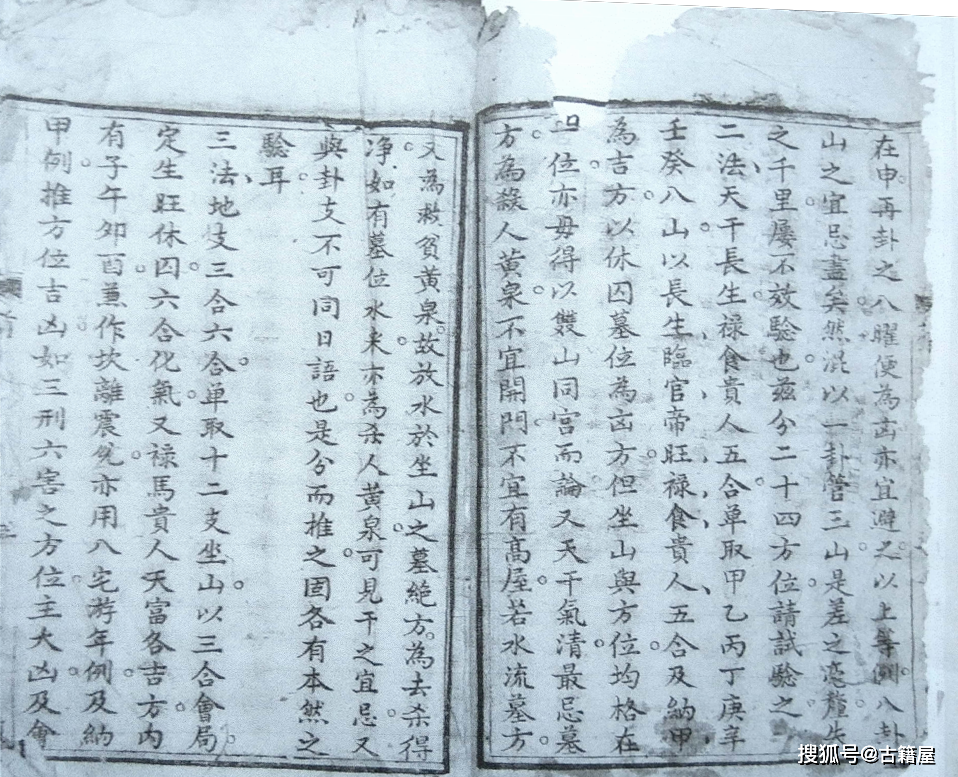 在申再卦之八曜便為凶亦宜避之以上等例八卦
山之宜忌盡矣然混以一卦管三山是差之毫釐失
之千里屢不效驗也茲分二十四方位請試驗之
二法天干長生祿食貴人五合单取甲乙丙丁庚辛
壬癸八山以長生臨官帝旺祿食貴人五合及納甲
為吉方以休囚墓位為凶方但坐山與方位均格在
位亦毋得以雙山同宮而論又天干氣清最忌墓
方為殺人黃泉不宜開門不宜有高屋若水流墓方
又為救貧黃泉故放水於坐山之墓絕方為去杀得
净如有墓位水来亦為杀人黃泉可見干之宜忌又
與卦支不可同日語也是分而推之固各有本然之
驗耳
三法地支三合六合单取十二支坐山以三合會局
定生旺休囚六合化氣又祿馬貴人天富各吉方内
有子午夘酉兼作坎離震兊亦用八宅游年例及納
甲例推方位吉凶如三刑六害之方位主大凶及會
搜狐号@古籍屋